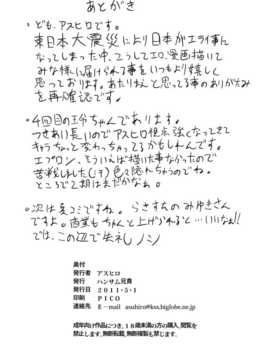 あとがき
・ども、アスヒロです。
東日本大震災により日本がエライ事に
なってしまった中、こうしてエロ漫画描いて
みな様に届けられて事をいつもより嬉しく
思っております。あたりまえと思ってる事のありがたみ
を再確認です。
・4回目の王ちゃんであります。
つきあい長いのでアスヒロ視点強くなってきて
キャラちょっと変わっちゃってるかもしれんです。
エプロン、そういえば描いた事なかったので
苦戦しました(汗)色々隠れちゃうのでね。
ところで2期はまだかなぁ。
・次は夏コミですね。らきすたのみゆきさん
ですよ。商業もちゃんと上げられると…いいなぁ!!
では、この辺で失礼ノシ
奥付
発行者 アスヒロ
発行 ハンサム兄貴
発行日 2011・5・1
印刷 PICO
連絡先 E-mail asuhiro@kss.biglobe.ne.jp
成年向け作品につき、18歳未満の方の購入、閲覧を
禁止します。無断転載、無断複製も禁じます。